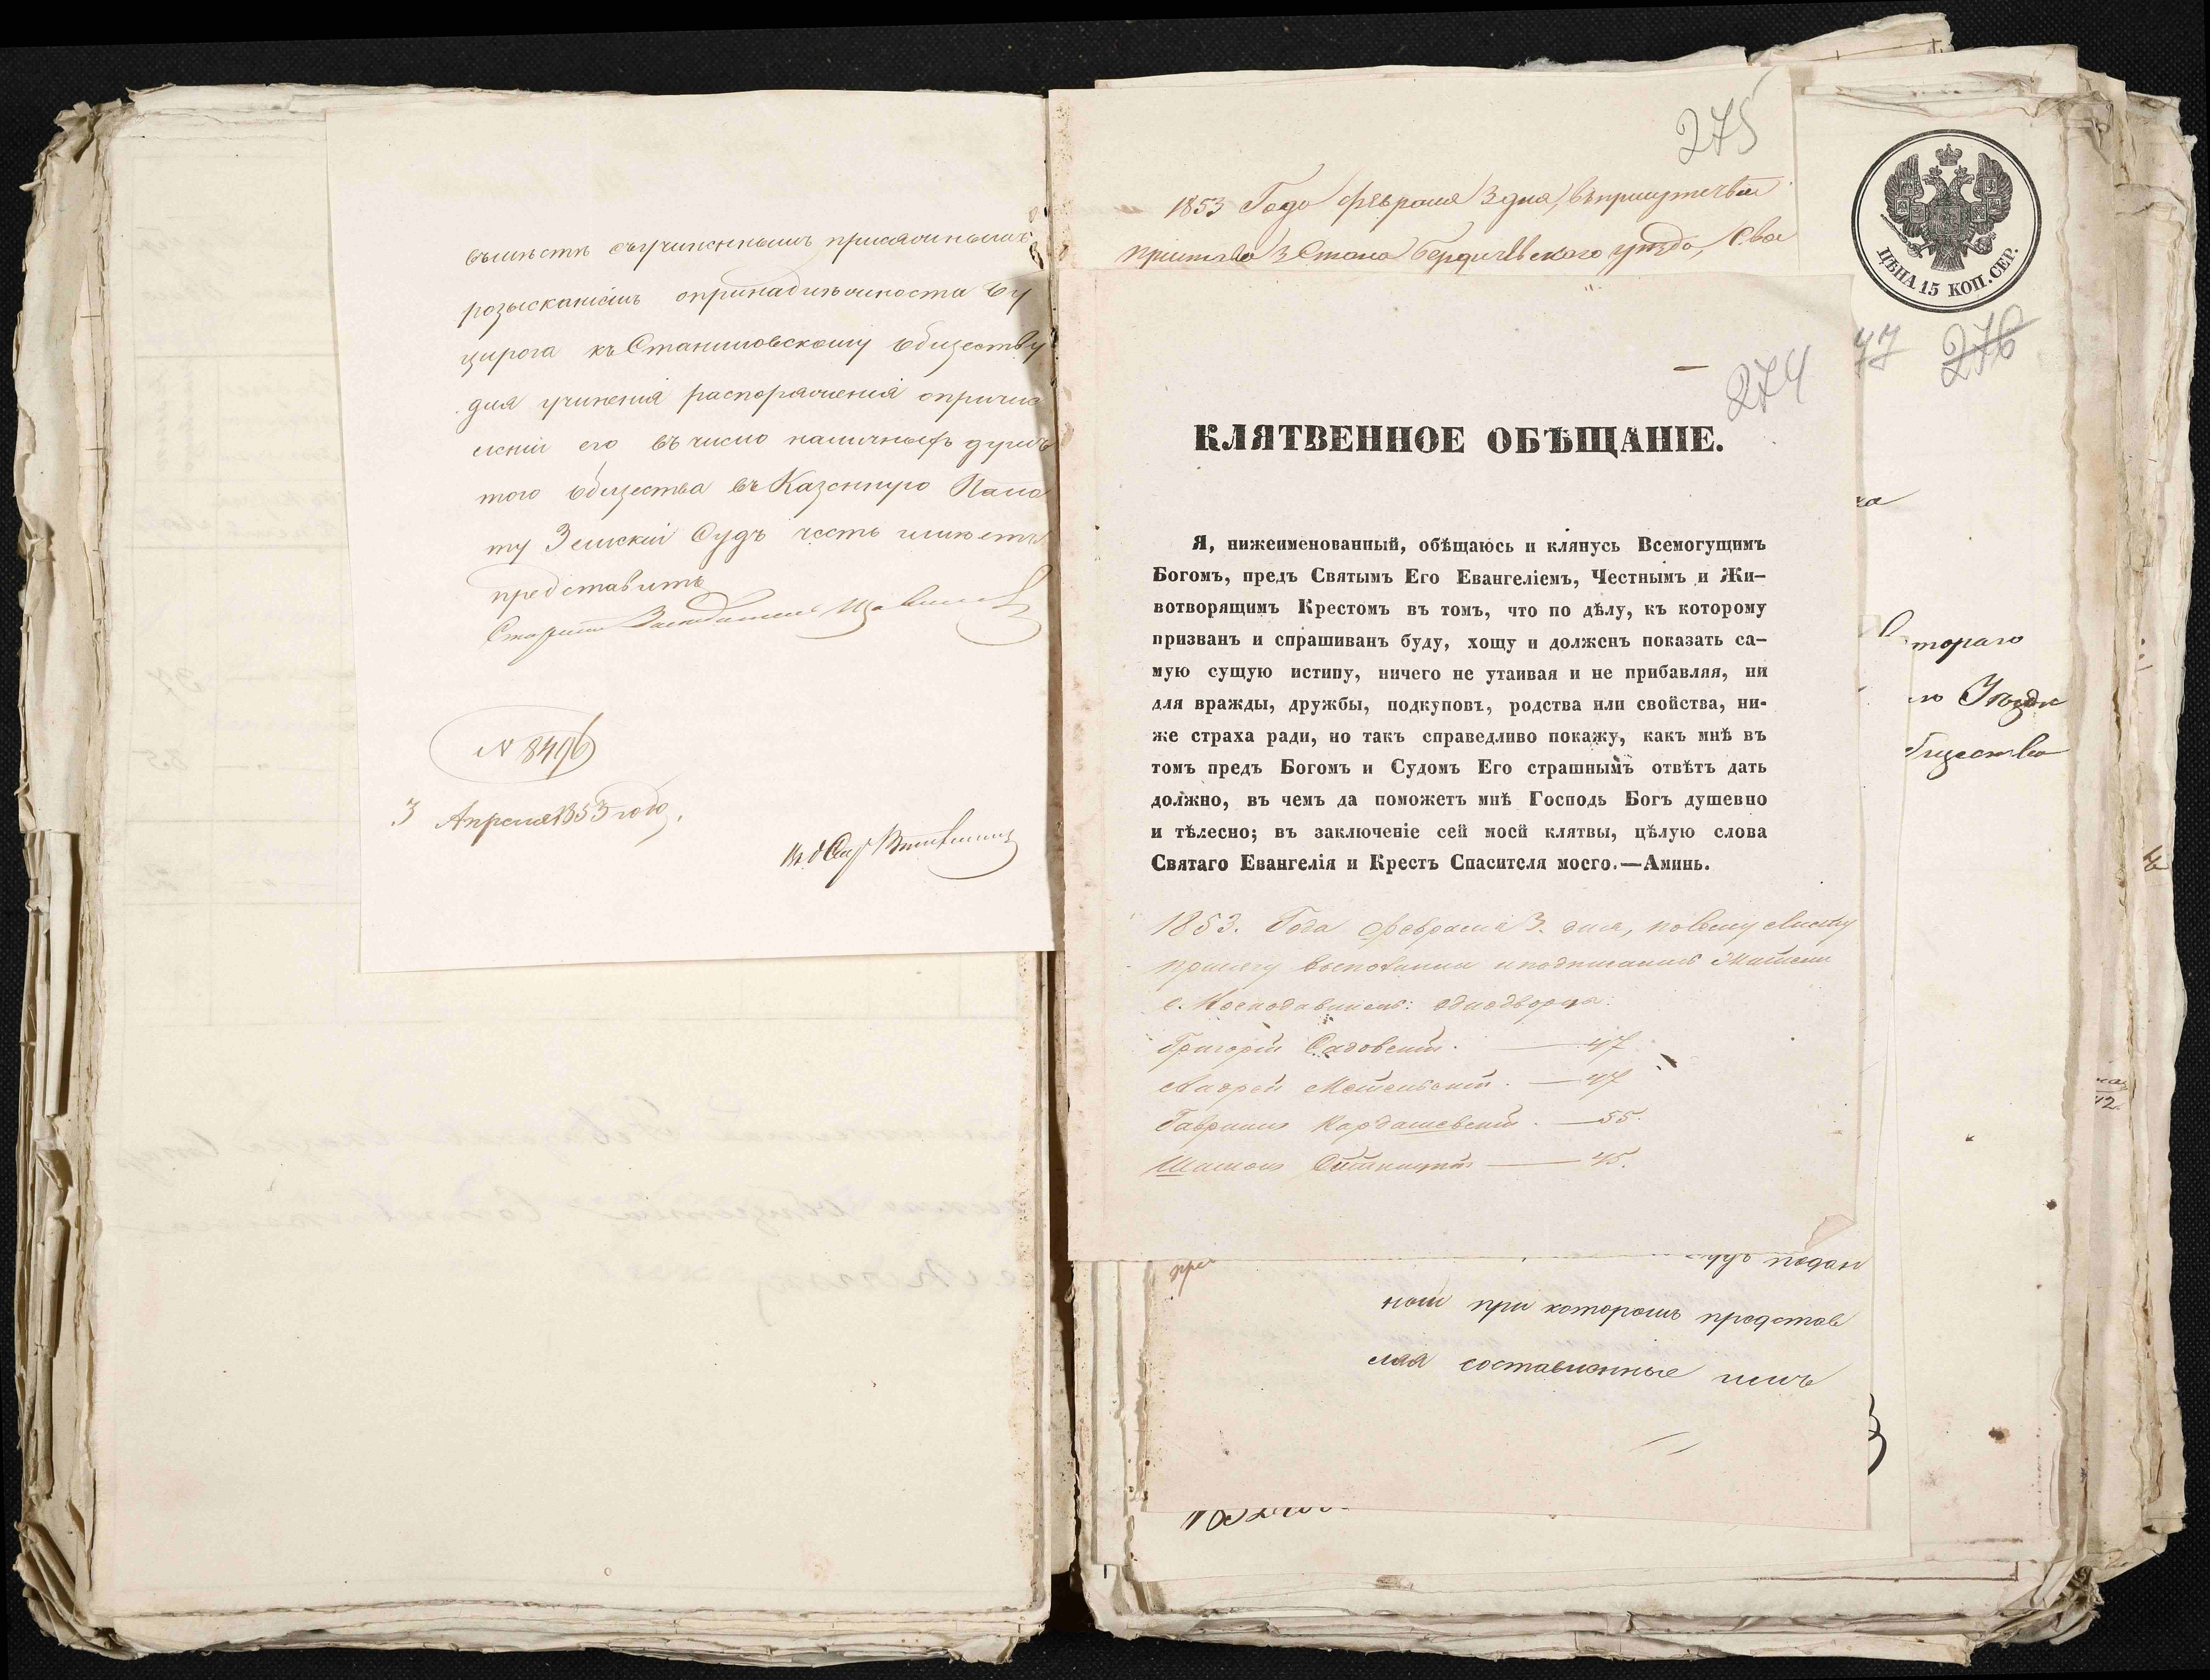 вместѣ съ учиненнымъ присяжнымъ
розысканіемъ о принадлежности Бу
цирога къ Станиловскому обществу
для учиненія распоряженія о причис
леніи его въ число наличныхъ душъ
того общества въ Казенную Пала
ту Земскій Судъ честь имѣетъ
представить
Старшій Засѣдатель
N 8496
3 Апреля 1853 года.
275
1853 Года февраля 3 дня, въ присутствіи
пристава 3 Стана Бердичевскаго уѣзда,
ЦѢНА 15 КОП. СЕР.
77 276
274
КЛЯТВЕННОЕ ОБѢЩАНІЕ.
Я, нижеименованный, обѣщаюсь и клянусь Всемогущимъ
Богомъ, предъ Святымъ Его Евангеліемъ, Честнымъ и Жи-
вотворящимъ Крестомъ въ томъ, что по дѣлу, къ которому
призванъ и спрашиванъ буду, хощу и долженъ показать са-
мую сущую истину, ничего не утаивая и не прибавляя, ни
для вражды, дружбы, подкуповъ, родства или свойства, ни-
же страха ради, но такъ справедливо покажу, какъ мнѣ въ
томъ предъ Богомъ и Судомъ Его страшнымъ отвѣтъ дать
должно, въ чемъ да поможетъ мнѣ Господь Богъ душевно
и тѣлесно; въ заключеніе сей моей клятвы, цѣлую слова
Святаго Евангелія и Крестъ Спасителя моего.—Аминь.
1853. Года февраля 3. дня, по сему
присягу выполнили
однодворцы:
Григорій Садовскій. — 47
Андрей — 47
Гавриилъ Кардашевскій. — 55.
— 45.
тораго
го Уѣзда
бщества
подан
номъ при которомъ представ
ляя составленные имъ